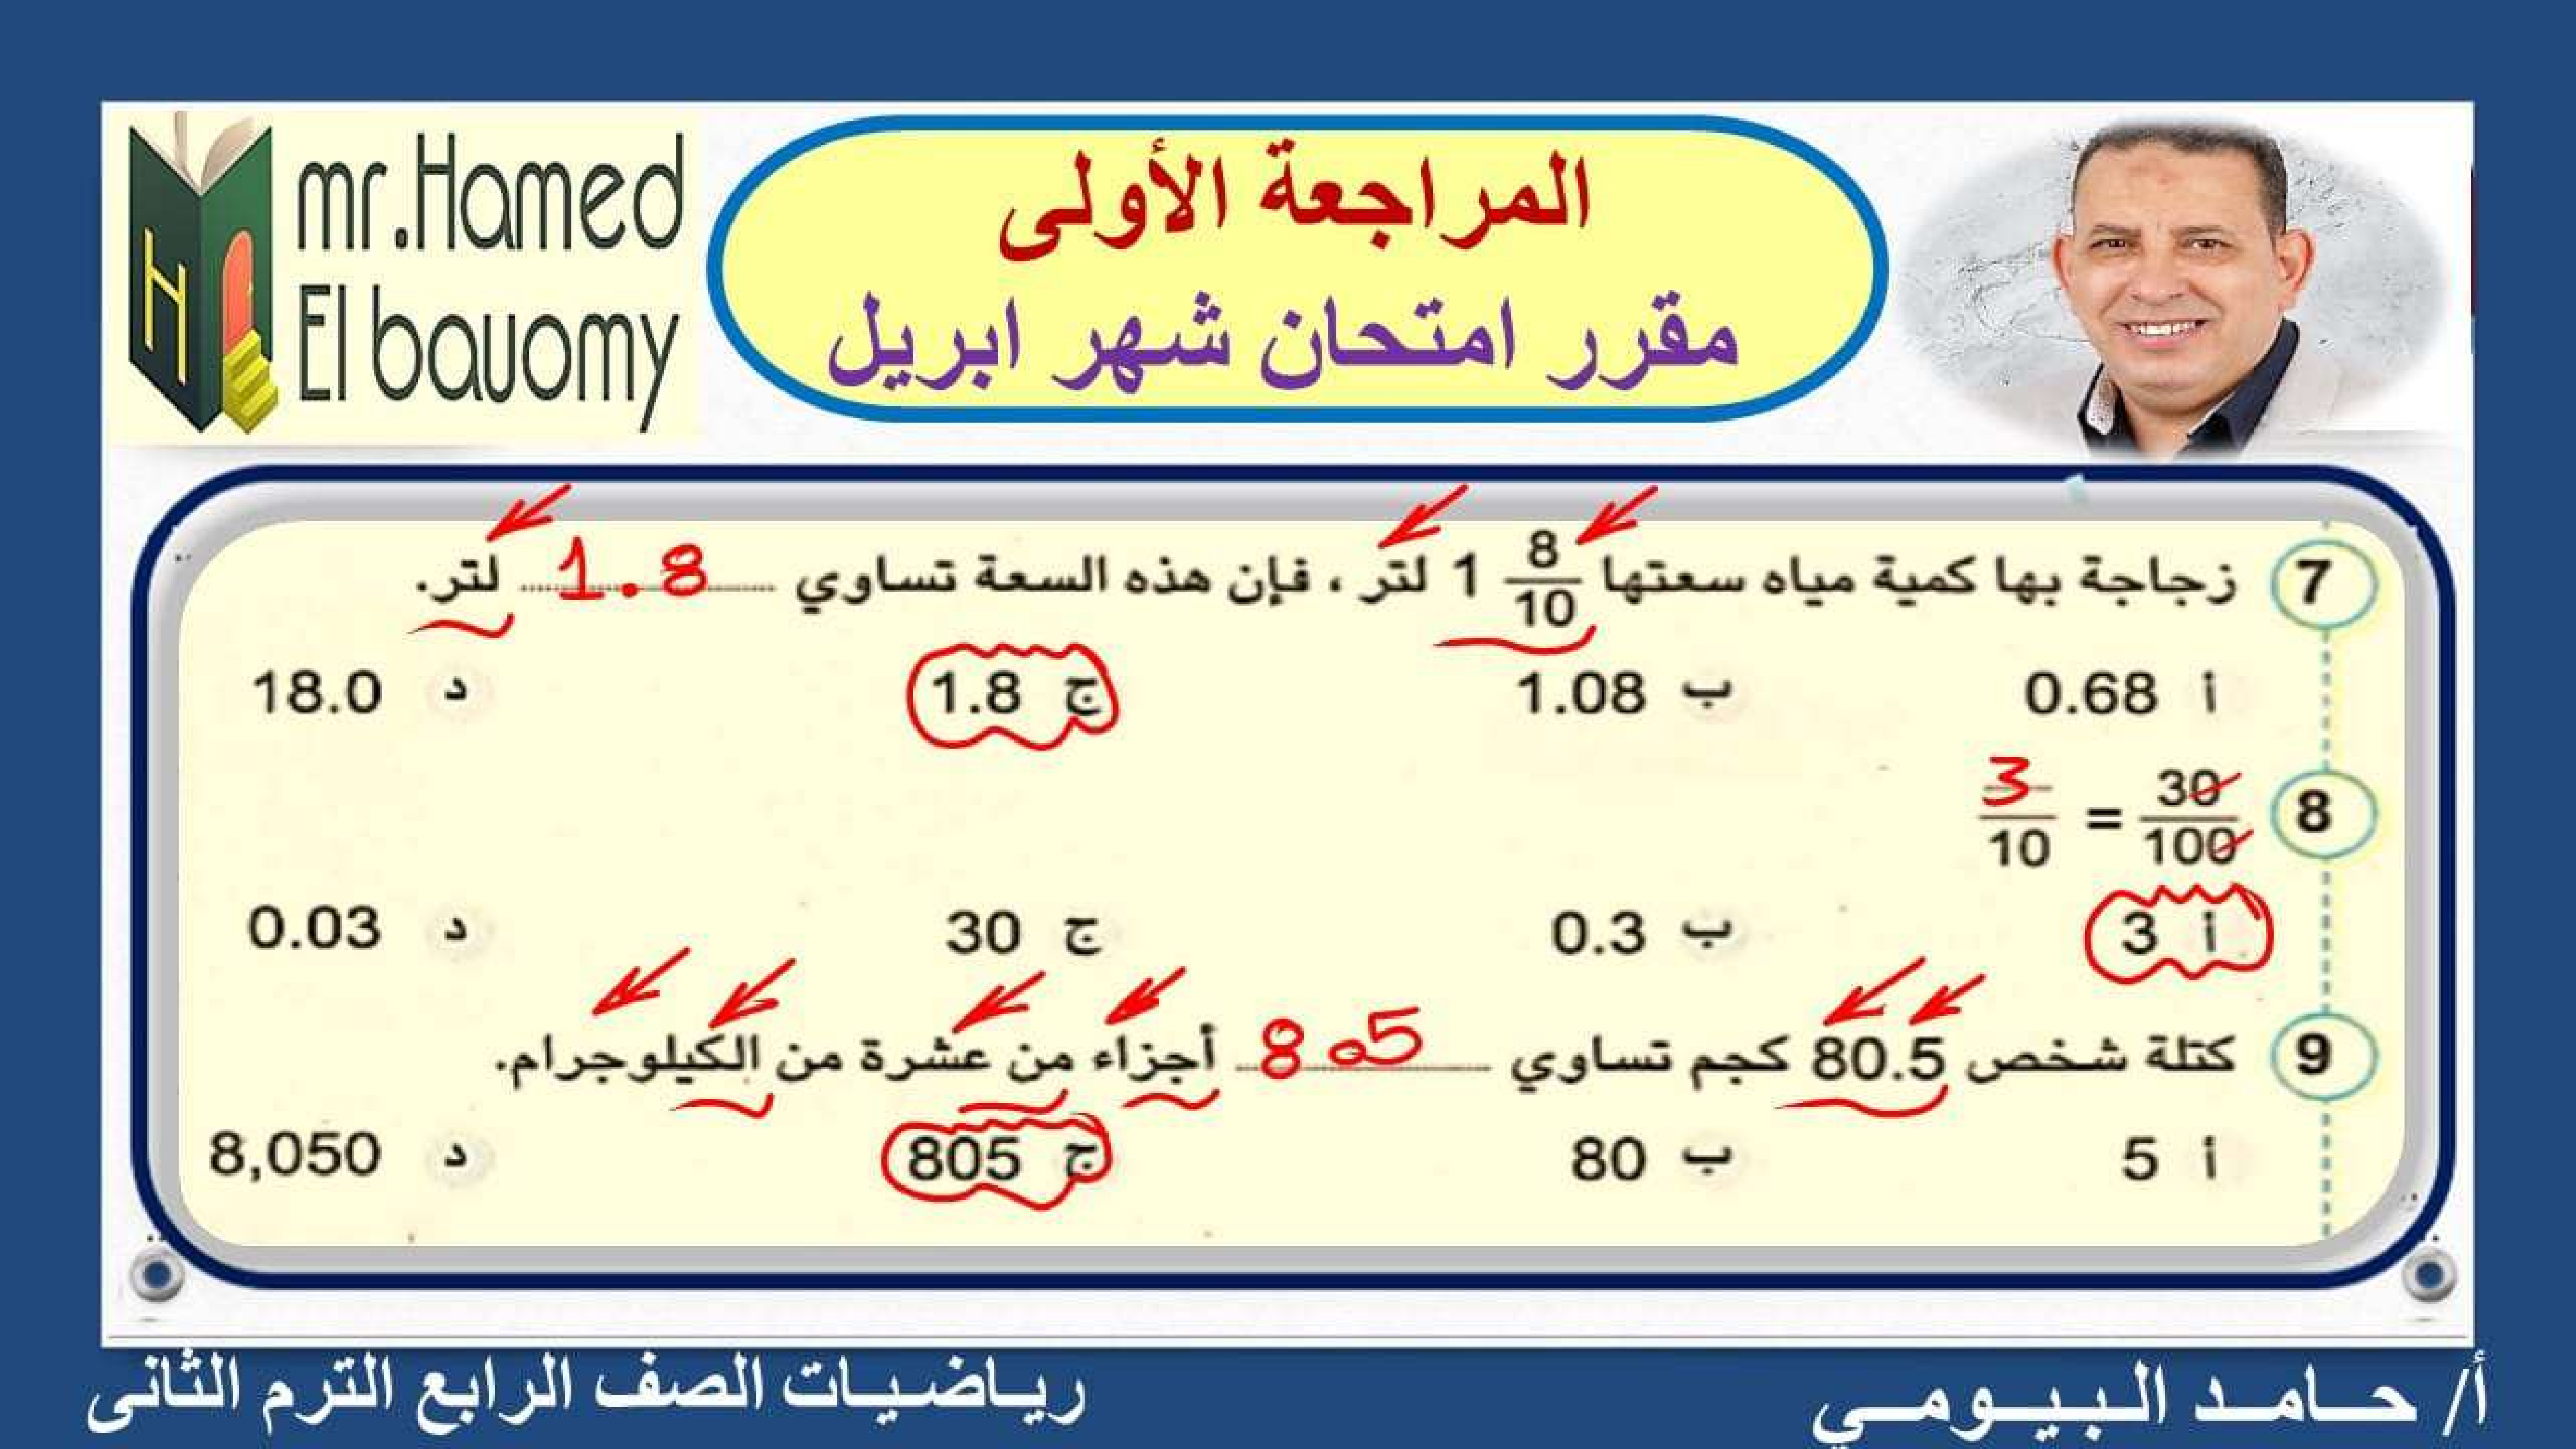 mr.Hamed
El bauomy
المراجعة الأولى
مقرر امتحان شهر ابريل
7 زجاجة بها كمية مياه سعتها 1 8/10 لتر ، فإن هذه السعة تساوي 1.8 لتر.
أ 0.68 ب 1.08 ج 1.8 د 18.0
8 30/100 = 3/10
أ 3 ب 0.3 ج 30 د 0.03
9 كتلة شخص 80.5 كجم تساوي 805 أجزاء من عشرة من الكيلوجرام.
أ 5 ب 80 ج 805 د 8,050
أ/ حامد البيومي
رياضيات الصف الرابع الترم الثانى